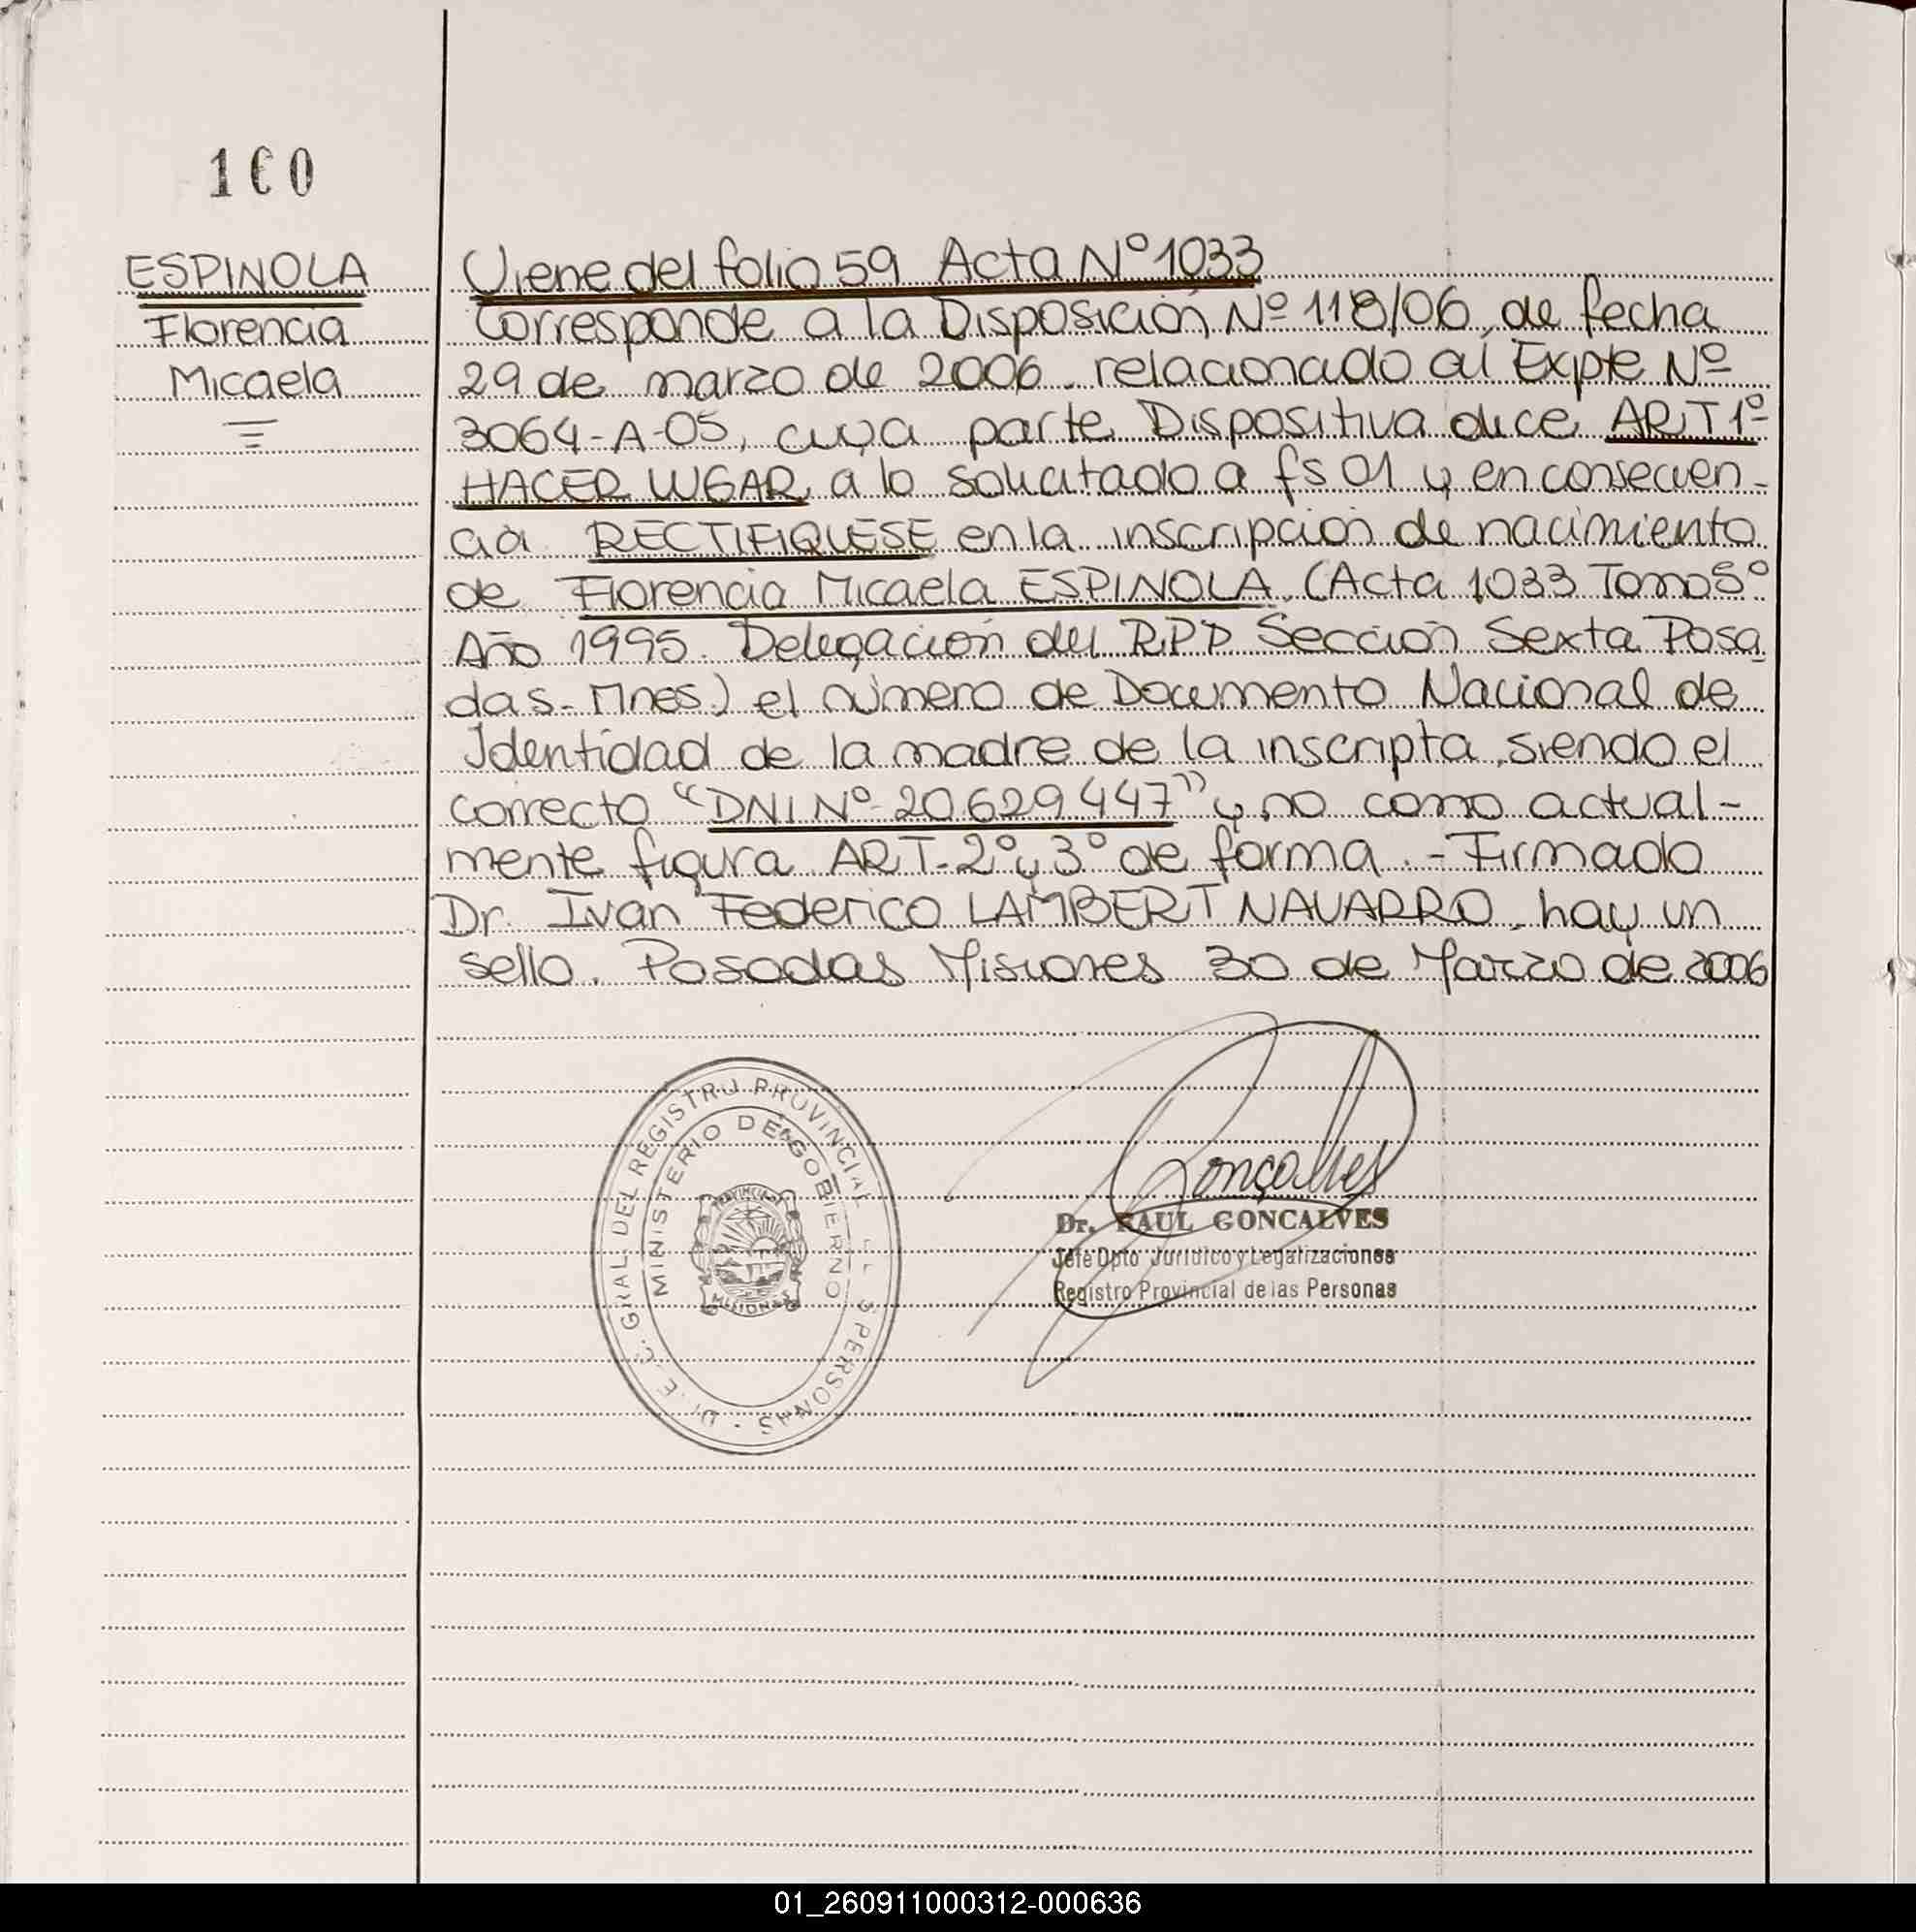 160
ESPINOLA
Florencia
Micaela
Viene del folio 59 Acta Nº 1033
Corresponde a la Disposición Nº 118/06, de fecha
29 de marzo de 2006. relacionado al Expte Nº
3064-A-05, cuya parte Dispositiva dice ART 1º
HACER LUGAR a lo solicitado a fs 01 y en consecuen-
cia RECTIFIQUESE en la inscripción de nacimiento
de Florencia Micaela ESPINOLA. (Acta 1033 Tomo 5º
Año 1995. Delegación del R.P.P Sección Sexta Posa
das-Mnes.) el número de Documento Nacional de
Identidad de la madre de la inscripta, siendo el
correcto "DNI Nº 20.629.447" y no como actual-
mente figura ART-2º y 3º de forma.- Firmado
Dr. Ivan Federico LAMBERT NAVARRO. hay un
sello. Posadas Misiones 30 de Marzo de 2006
GRAL DEL REGISTRO PROVINCIAL PERSONAS
MINISTERIO DE GOBIERNO
PROVINCIA
MISIONES
Gonçalves
Dr. RAUL GONCALVES
Jefe Dpto Jurídico y Legalizaciones
Registro Provincial de las Personas
01_260911000312-000636